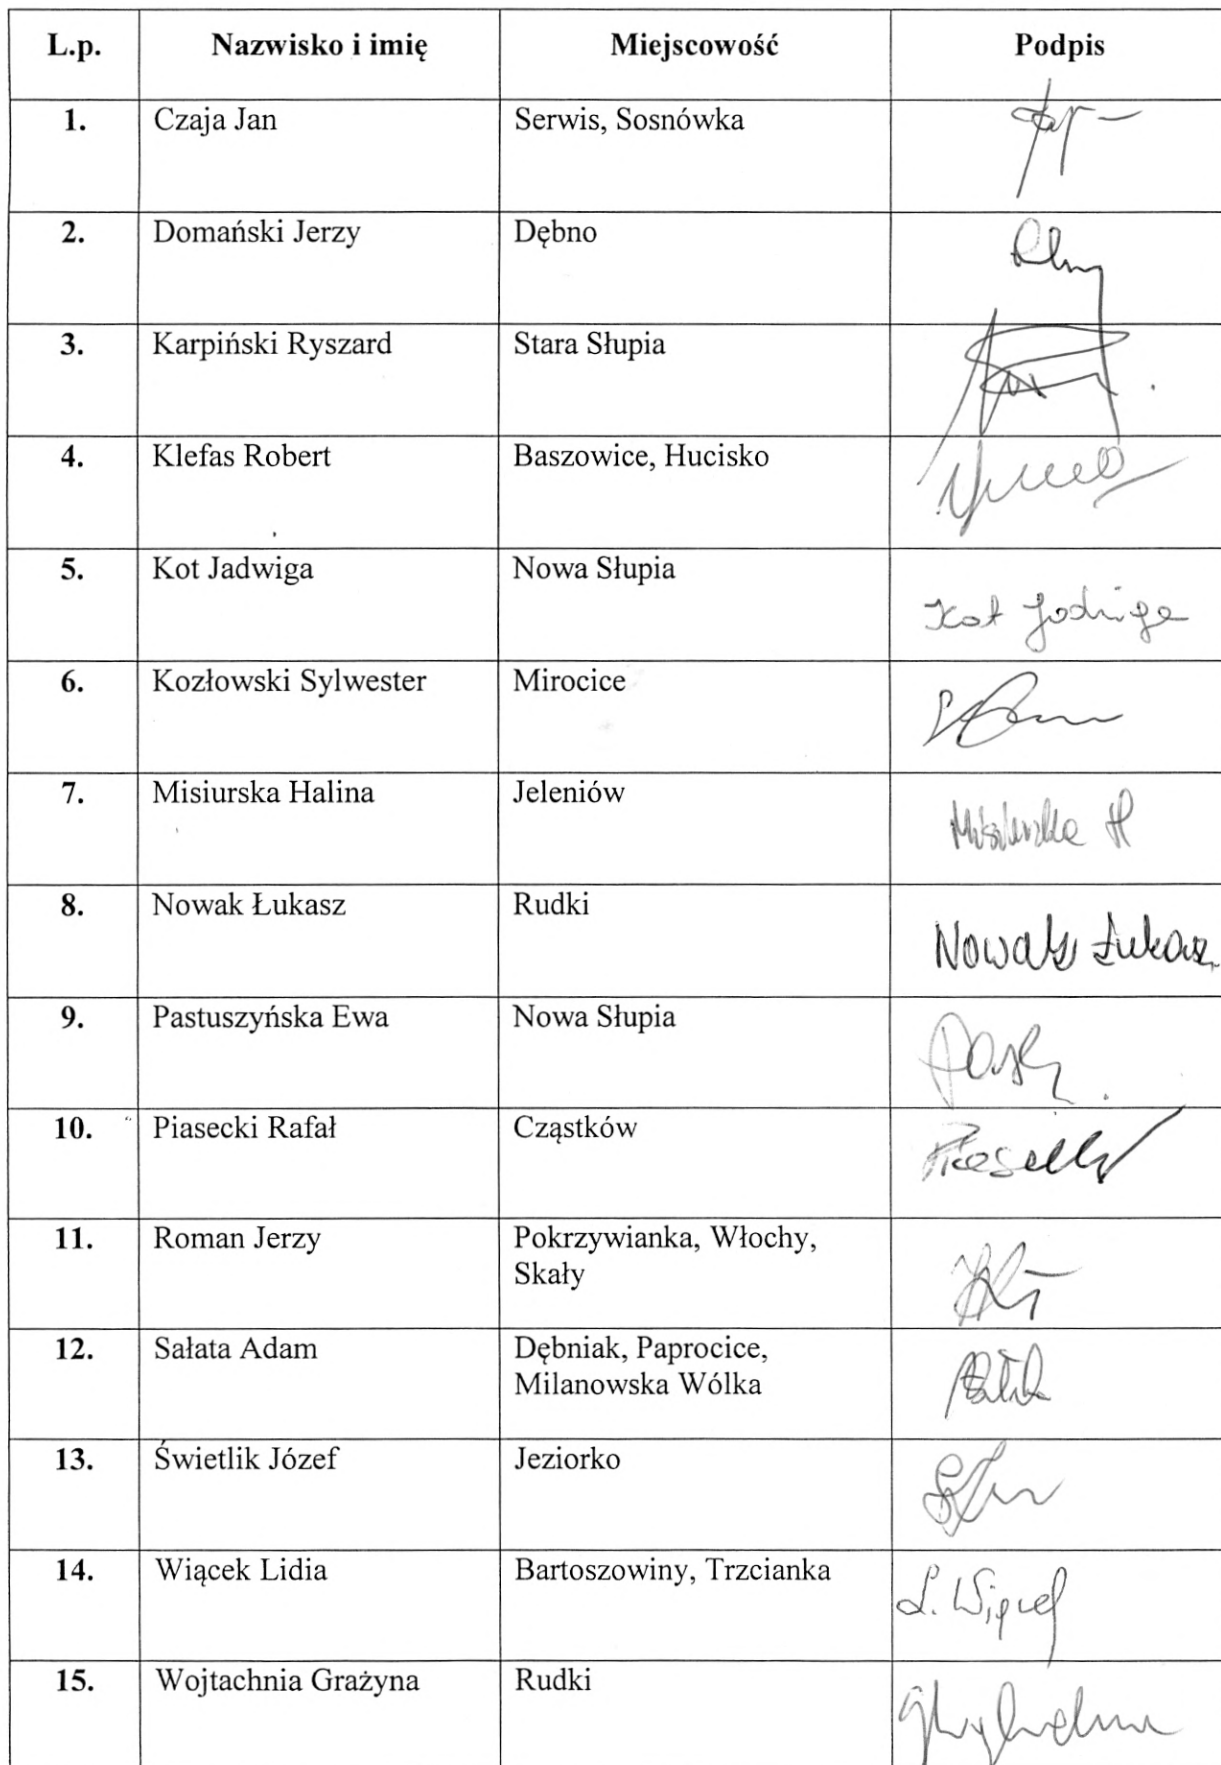 L.p. Nazwisko i imię Miejscowość Podpis
1. Czaja Jan Serwis, Sosnówka
2. Domański Jerzy Dębno
3. Karpiński Ryszard Stara Słupia
4. Klefas Robert Baszowice, Hucisko
5. Kot Jadwiga Nowa Słupia Kot Jadwiga
6. Kozłowski Sylwester Mirocice
7. Misiurska Halina Jeleniów Misiurska H
8. Nowak Łukasz Rudki Nowak Łukasz
9. Pastuszyńska Ewa Nowa Słupia
10. Piasecki Rafał Cząstków
11. Roman Jerzy Pokrzywianka, Włochy,
Skały
12. Sałata Adam Dębniak, Paprocice,
Milanowska Wólka
13. Świetlik Józef Jeziorko
14. Wiącek Lidia Bartoszowiny, Trzcianka L. Wiącek
15. Wojtachnia Grażyna Rudki